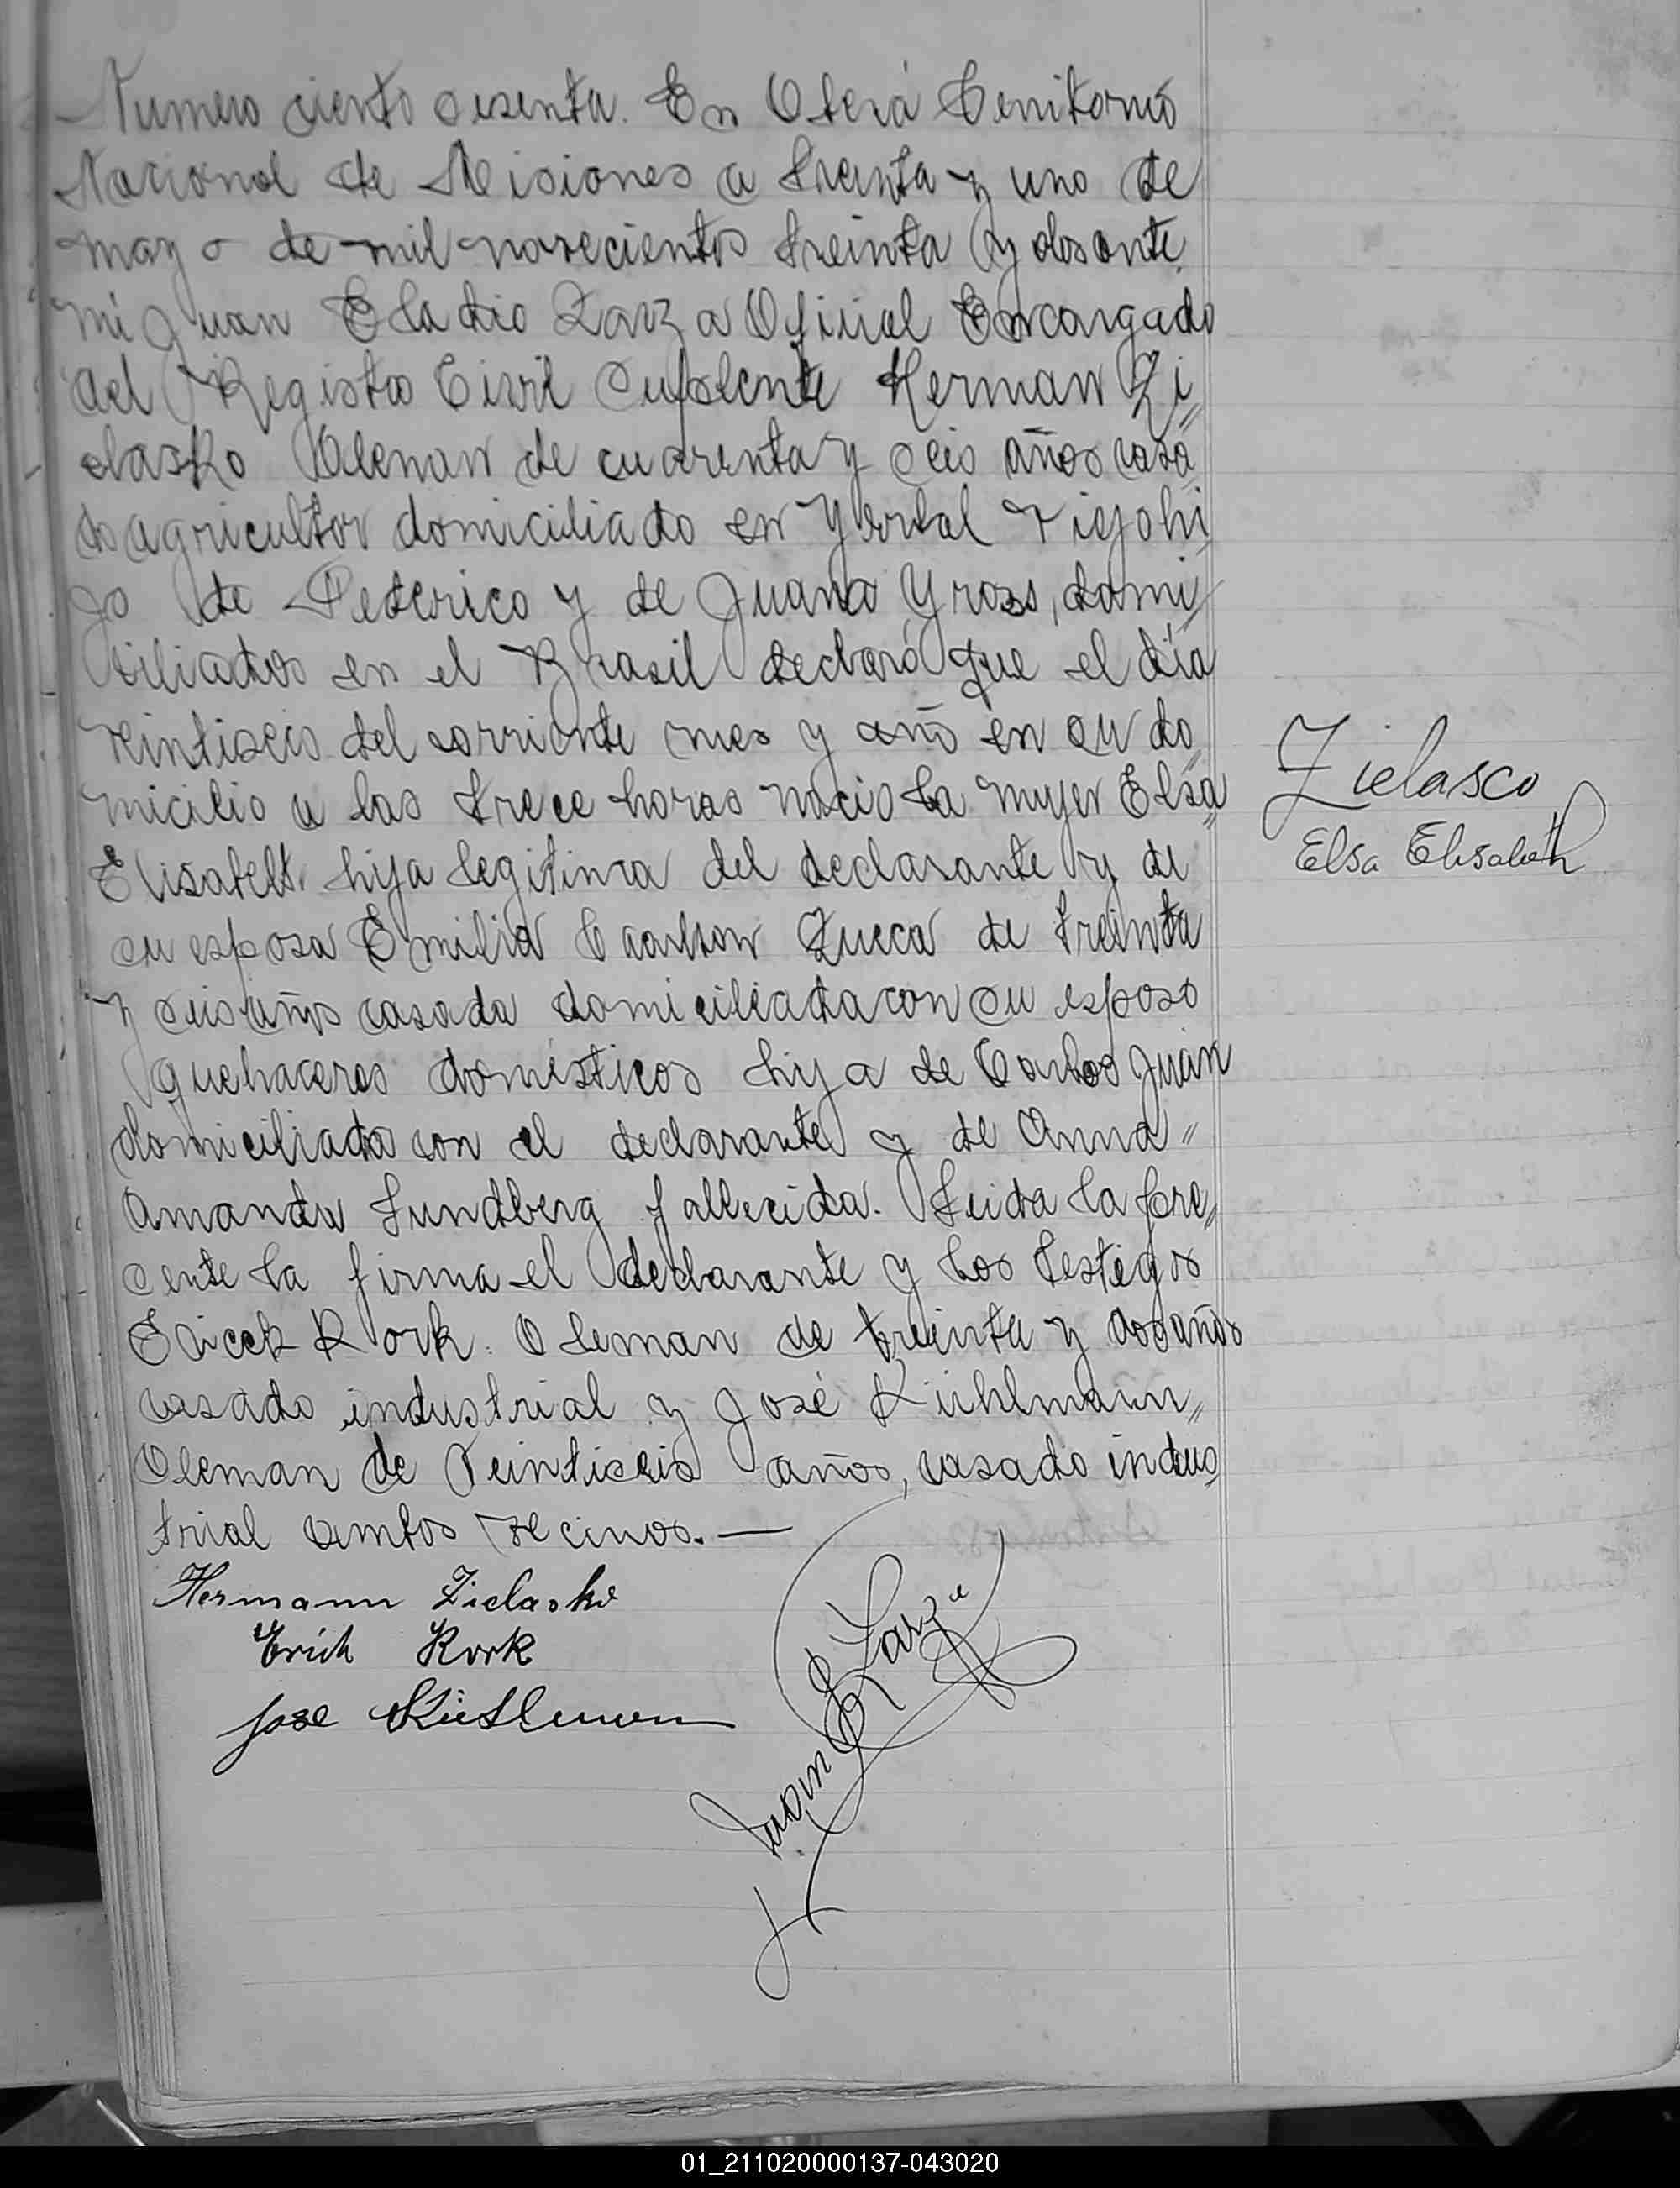 Numero ciento sesenta. En Oberá Territorio
Nacional de Misiones a treinta y uno de
mayo de mil novecientos treinta y dos ante
mi Juan Eladio Zarza Oficial Encargado
del Registro Civil Suplente Herman Zi
elasko Aleman de cuarenta y seis años casa
do agricultor domiciliado en Yerbal Viejo hi
jo de Federico y de Juana Gross, domi
ciliados en el Brasil declaró que el día
veintiseis del corriente mes y año en su do
micilio a las trece horas nacio la mujer Elsa
Elisabeth hija legitima del declarante y de
su esposa Emilia de treinta
y seis años casada domiciliada con su esposo
quehaceres domésticos hija de Carlos Juan
domiciliado con el declarante y de Anna
Amanda Lundberg fallecida. Leida la pre
sente la firma el declarante y los testigos
Erick Rork. Aleman de treinta y dos años
casado industrial y José Kühlmann
Aleman de Veintiseis años, casado indus
trial ambos vecinos.—
Zielasco
Elsa Elisabeth
Hermann Zielasko
Erich Rork
Jose Kühlmann
Juan E Zarza
01_211020000137-043020